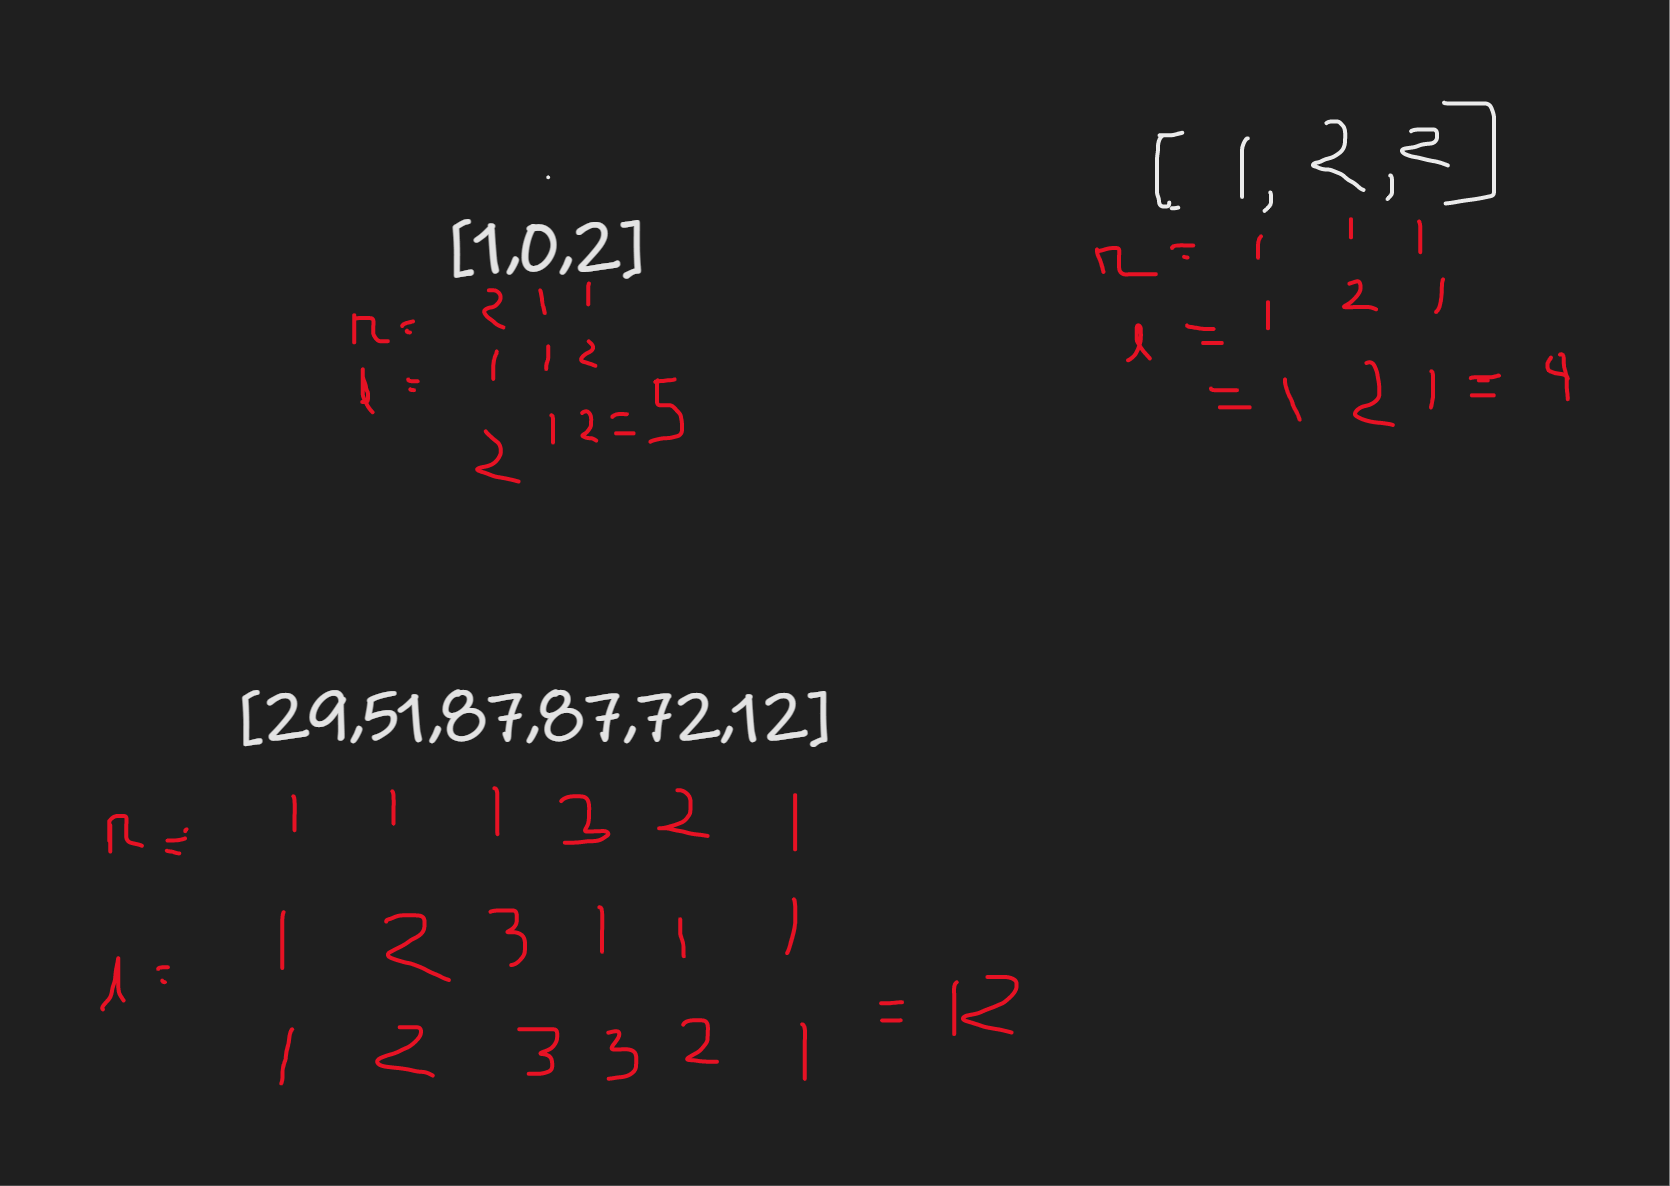 [1,0,2]
r= 2 1 1
l= 1 1 2
2 1 2 = 5
[1, 2, 2]
r= 1 1 1
l = 1 2 1
= 1 2 1 = 4
[29,51,87,87,72,12]
r= 1 1 1 3 2 1
l= 1 2 3 1 1 1
1 2 3 3 2 1 = 12